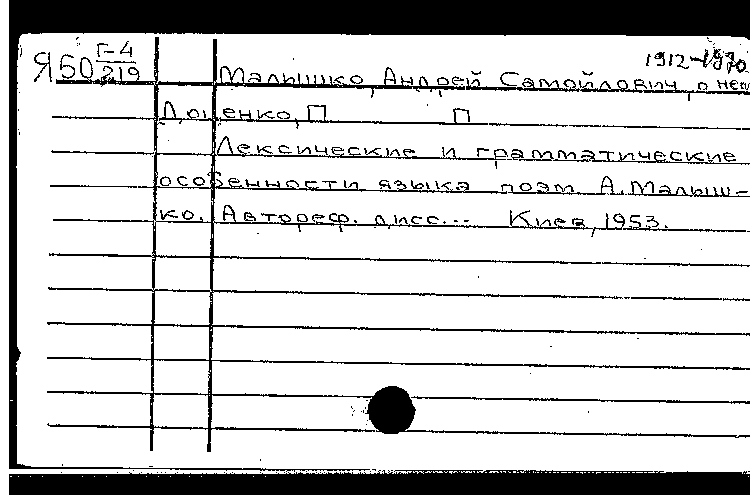 Я50 Г-4/219
1912-1970
Малышко, Андрей Самойлович, о нем
Доценко, П П
Лексические и грамматические
особенности языка поэм А. Малыш-
ко. Автореф. дисс... Киев, 1953.